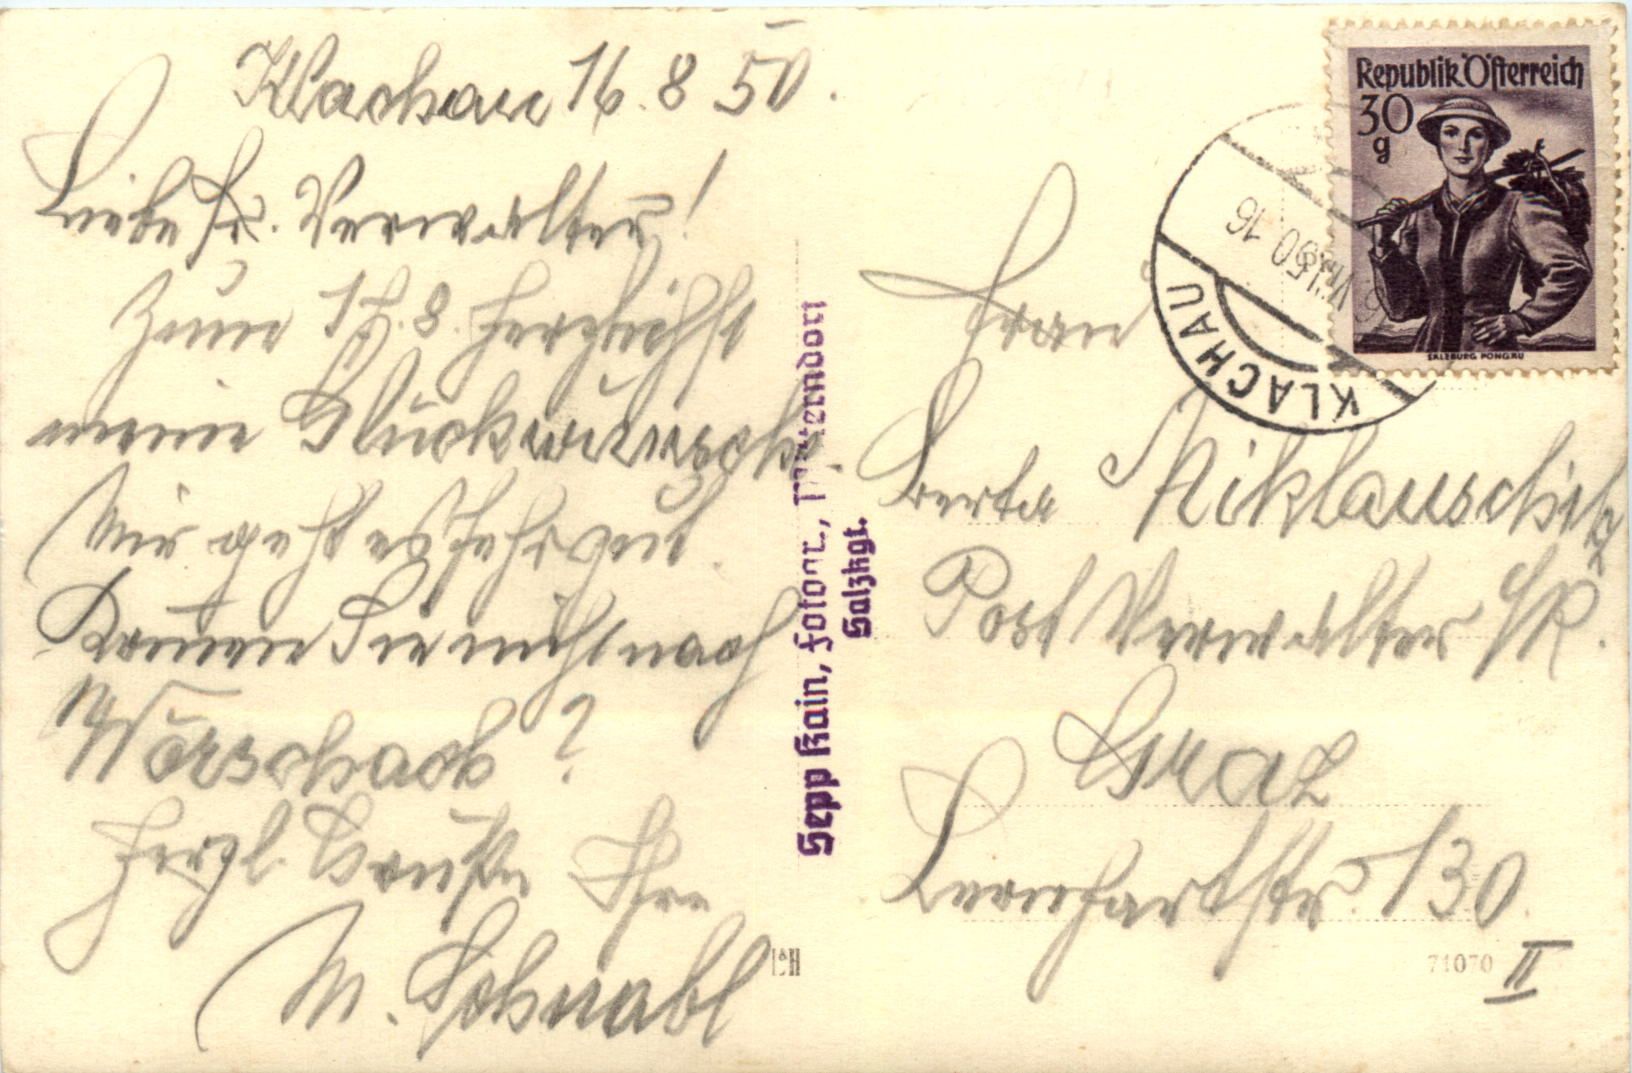 Klachau 16.8 50.
Liebe Fr. Verwalter!
Zum 17.8. herzlichst
meine Glückwünsche.
Mir geht es sehr gut.
Kommen Sie nicht nach
Wörschach?
Herzl. Grüße Ihre
M. Schnabl
Sepp Rain, Fotogr., Mitterndorf
Salzkgt.
L&H
Republik Österreich
30
g
SALZBURG PONGAU
KLACHAU
VIII 50 16
Frau
Berta Miklauschitz
Post Verwalter
Graz
Leonhartstr. 130
II
71070